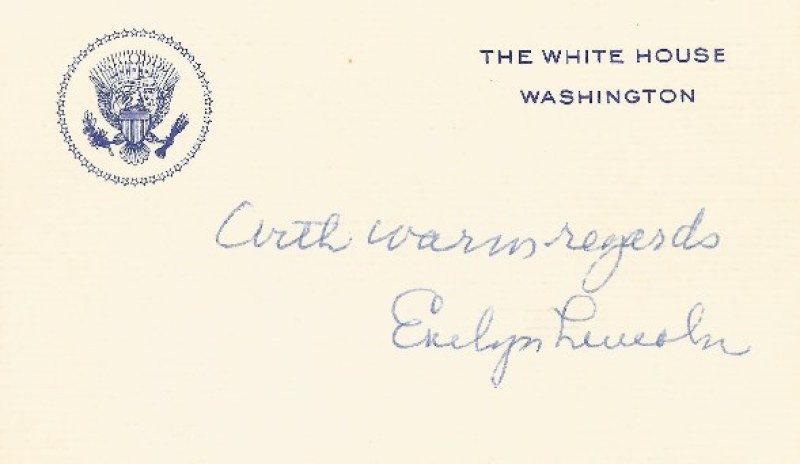 THE WHITE HOUSE
WASHINGTON
With warm regards
Evelyn Lincoln